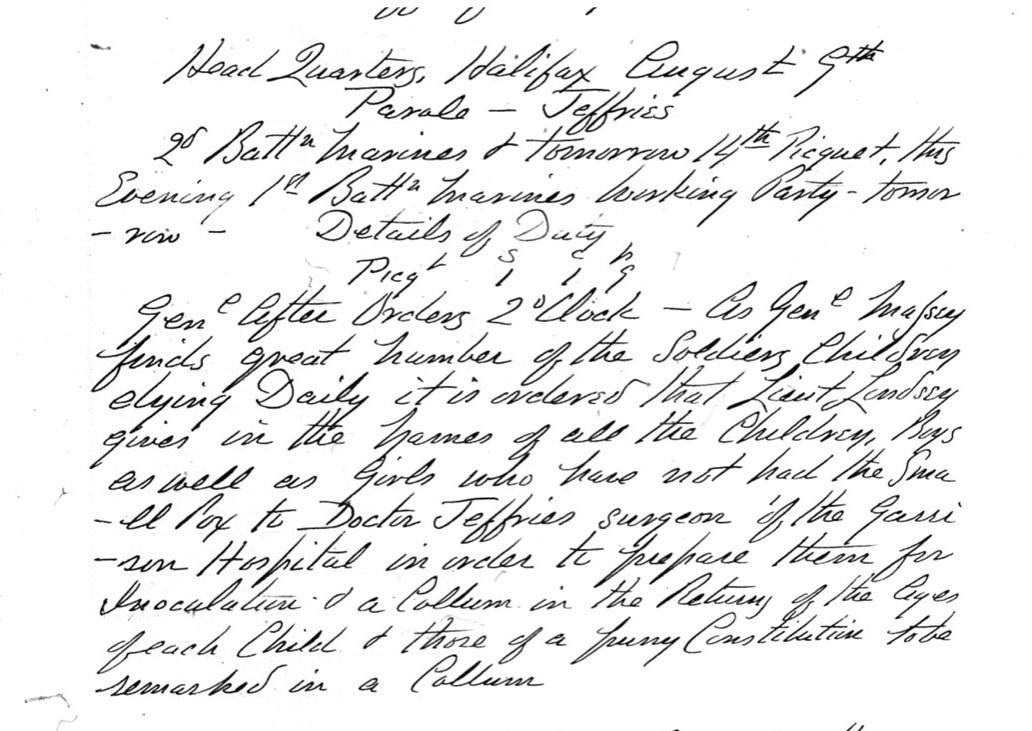 Head Quarters, Halifax August 9th
Parole - Jeffries
2d Battn Marines & tomorrow 14th Picquet, this
Evening 1st Battn Marines Working Party - tomor
- row - Details of Duty
S C P
Picqt 1 1 9
Genl After Orders 2 oClock - As Genl Massey
finds great number of the Soldiers Children
dying Daily it is ordered that Lieut Lindsey
gives in the names of all the Children, Boys
as well as Girls who have not had the Sma
- ll Pox to Doctor Jeffries surgeon of the Garri
- son Hospital in order to prepare them for
Inoculation & a Collum in the Returns of the Ages
of each Child & those of a puny Constitution to be
remarked in a Collum